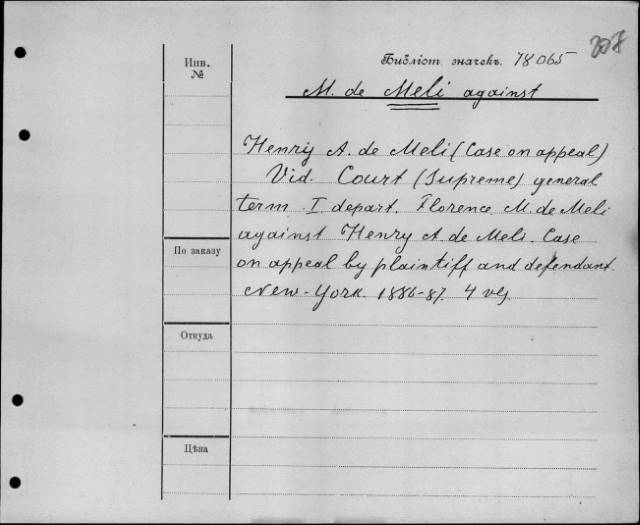 208
Инв.
№
Библіот. значекъ. 78065
M. de Meli against
Henry A. de Meli (Case on appeal)
Vid. Court (Supreme) general
term I depart. Florence M. de Meli
against Henry A. de Meli. Case
on appeal by plaintiff and defendant.
New-York. 1886-87. 4 vls.
По заказу
Откуда
Цѣна